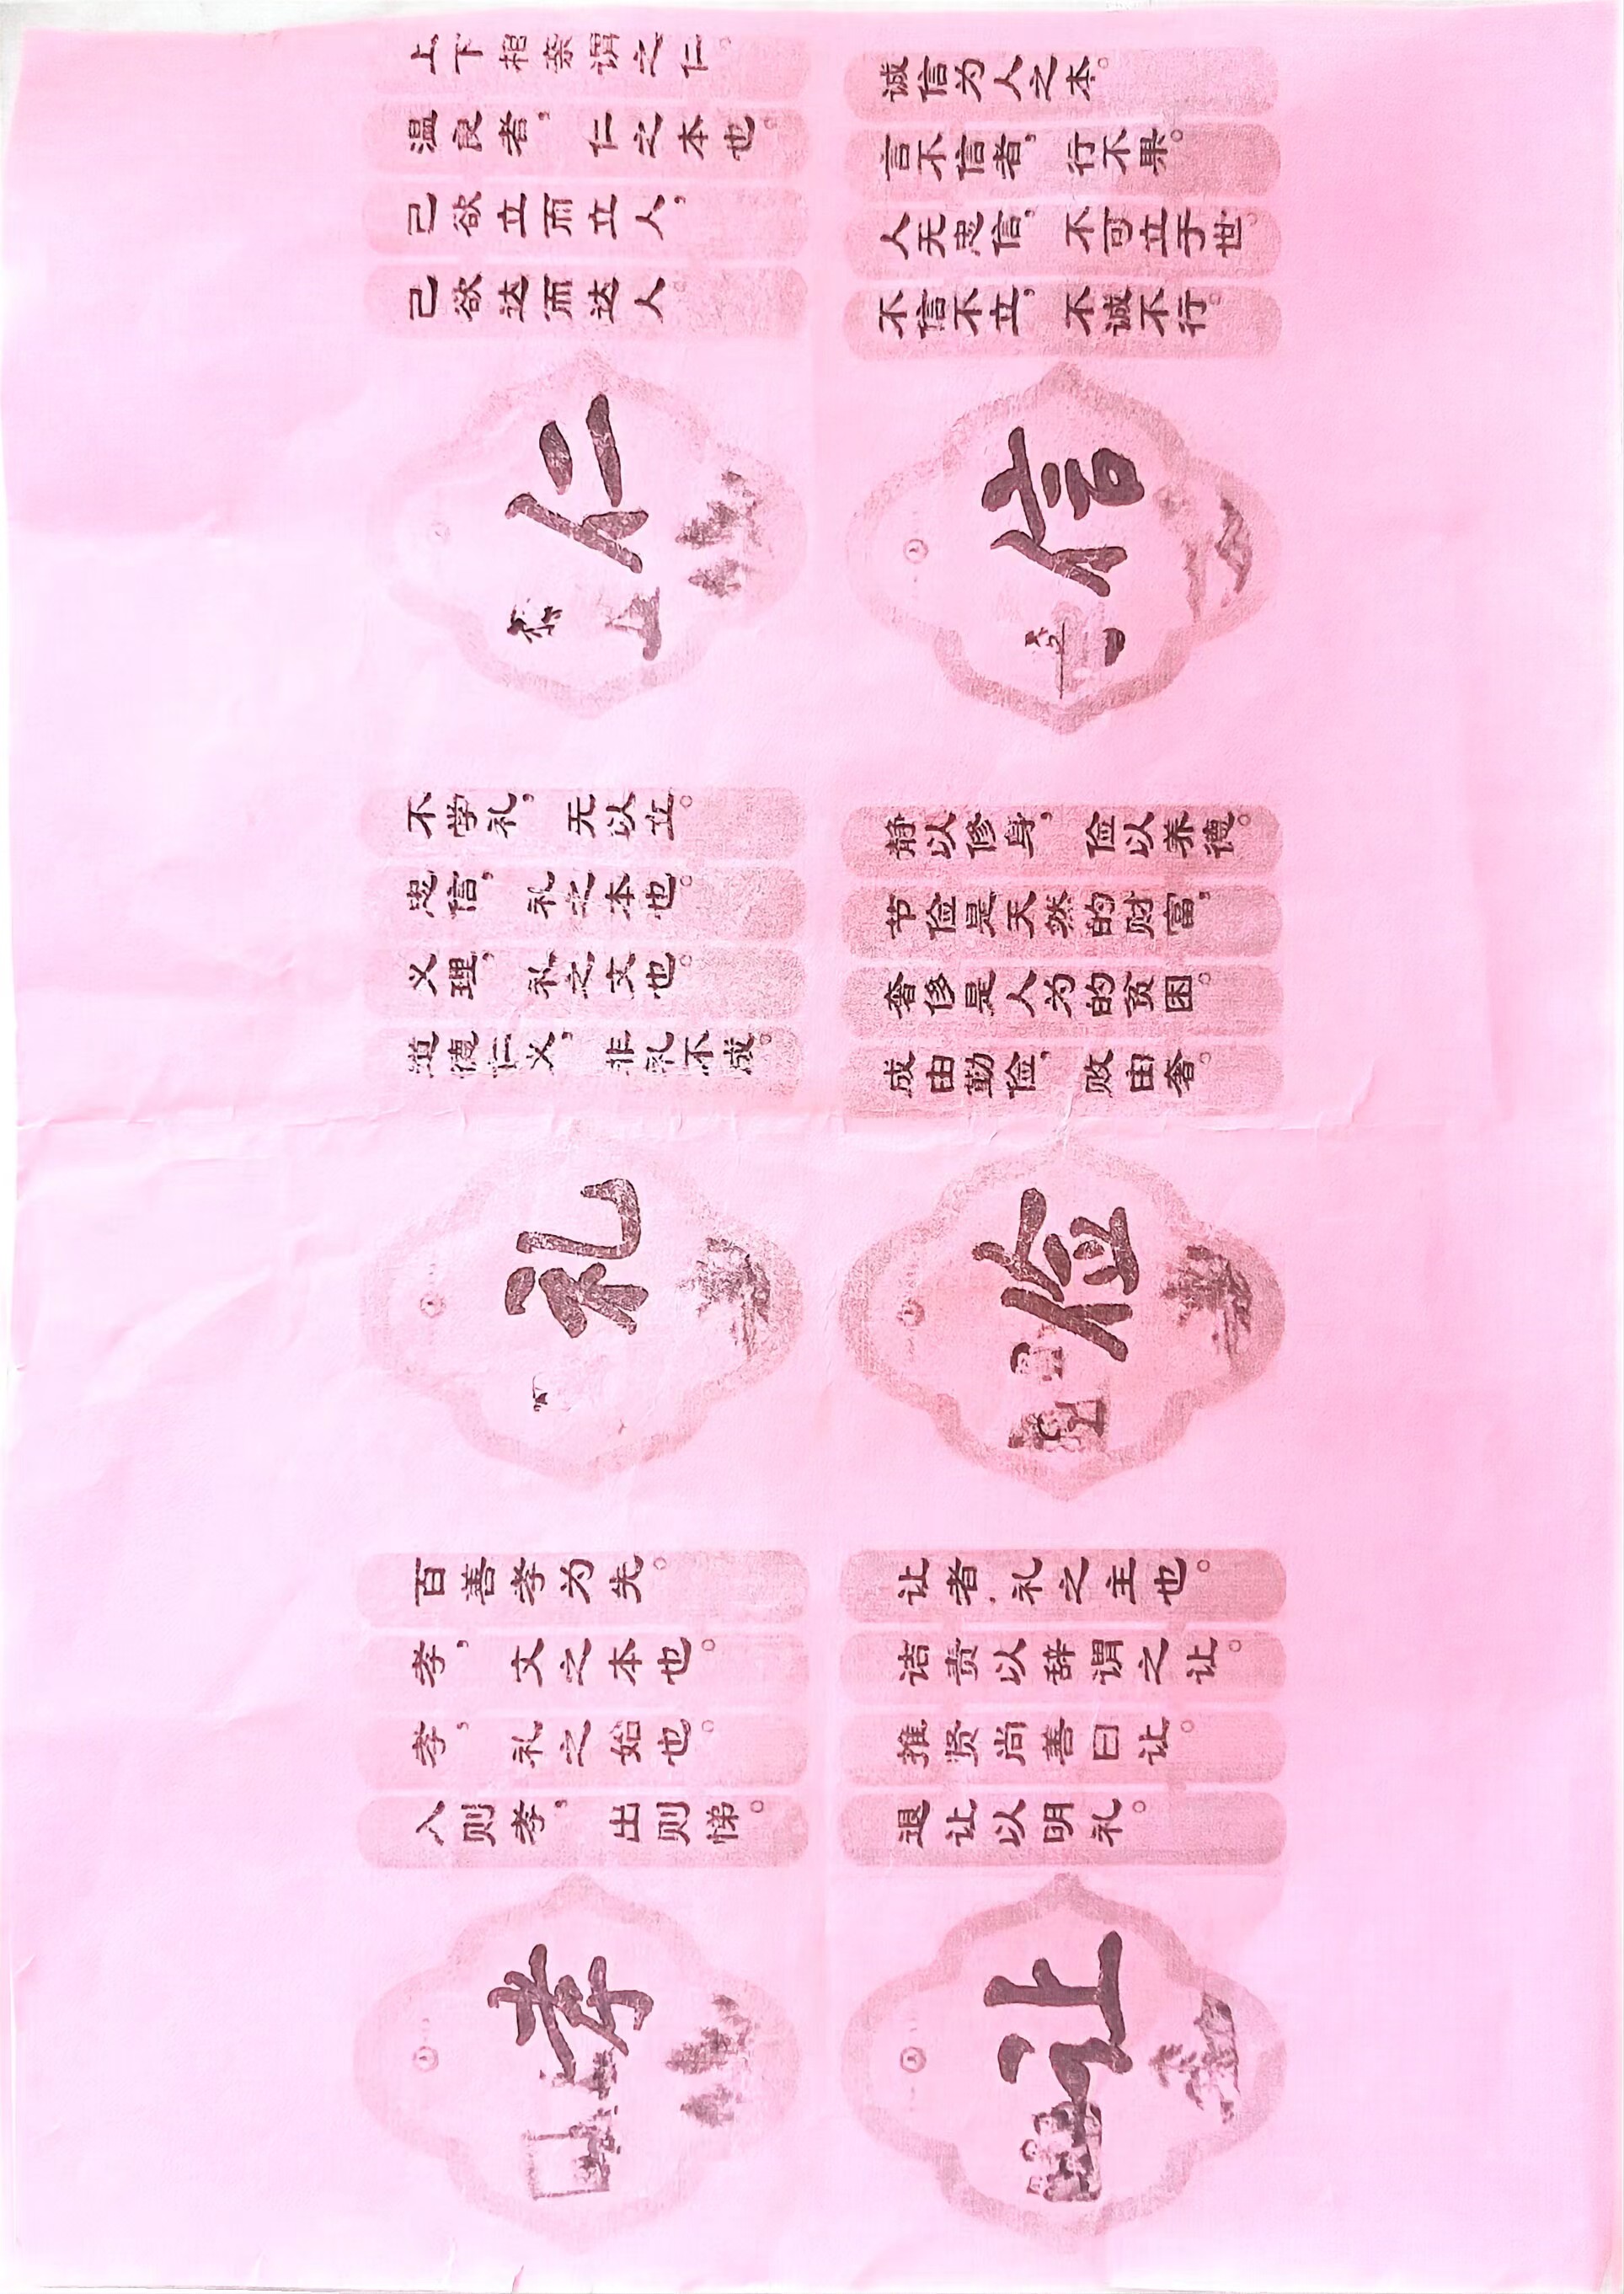 上下相亲谓之仁。
温良者，仁之本也。
己欲立而立人，
己欲达而达人。
仁
不学礼，无以立。
忠信，礼之本也。
义理，礼之文也。
道德仁义，非礼不成。
礼
百善孝为先。
孝，文之本也。
孝，礼之始也。
入则孝，出则悌。
孝
诚信为人之本。
言不信者，行不果。
人无忠信，不可立于世。
不信不立，不诚不行。
信
静以修身，俭以养德。
节俭是天然的财富，
奢侈是人为的贫困。
成由勤俭，败由奢。
俭
让者，礼之主也。
诘责以辞谓之让。
推贤尚善曰让。
退让以明礼。
让